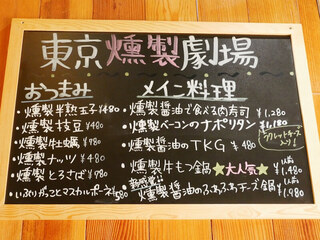 東京燻製劇場
おつまみ
・燻製半熟玉子¥480
・燻製枝豆 ¥480
・燻製牡蠣 ¥980
・燻製ナッツ ¥480
・燻製とろさば ¥780
・いぶりがっことマスカルポーネ¥580
メイン料理
・燻製醤油で食べる肉寿司 ¥1,280
・燻製ベーコンのナポリタン ¥1,180
ラクレットチーズ入り!
・燻製醤油のTKG ¥480
・燻製牛もつ鍋★大人気★ 1人前 ¥1,480
新感覚!!
・燻製醤油のふわふわチーズ鍋 1人前 ¥1,980